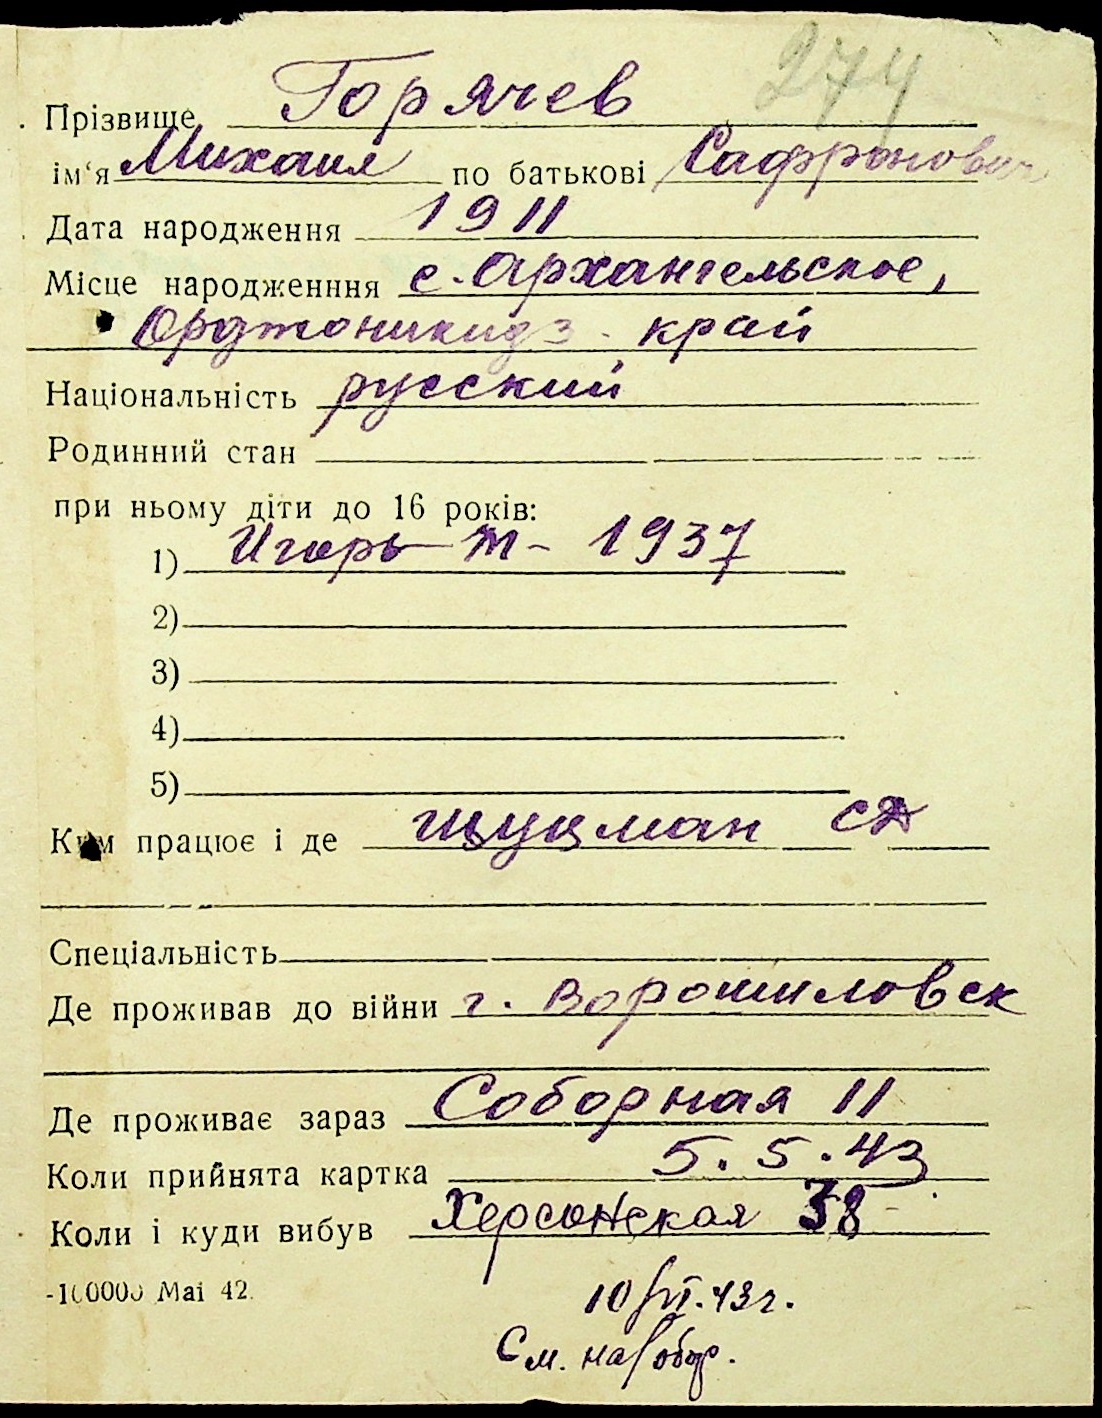 274
Прізвище Горячев
ім'я Михаил по батькові Сафронович
Дата народження 1911
Місце народженння с. Архангельское,
Орджоникидз. край
Національність русский
Родинний стан
при ньому діти до 16 років:
1) Игорь М- 1937
2)
3)
4)
5)
Ким працює і де шуцман СД
Спеціальність
Де проживав до війни г. Ворошиловск
Де проживає зараз Соборная 11
Коли прийнята картка 5.5.43
Коли і куди вибув Херсонская 38
-100000 Mai 42.
10/VI.43г.
См. на/обор.